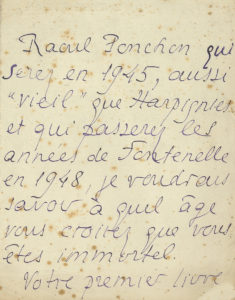 Raoul Ponchon qui
serez en 1945, aussi
"vieil" que Harpignies
et qui passerez les
années de Fontenelle
en 1948, je voudrais
savoir à quel âge
vous croirez que vous
êtes immortel.
Votre premier livre